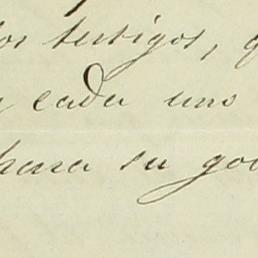 los testigos, q
cada uno
para su go